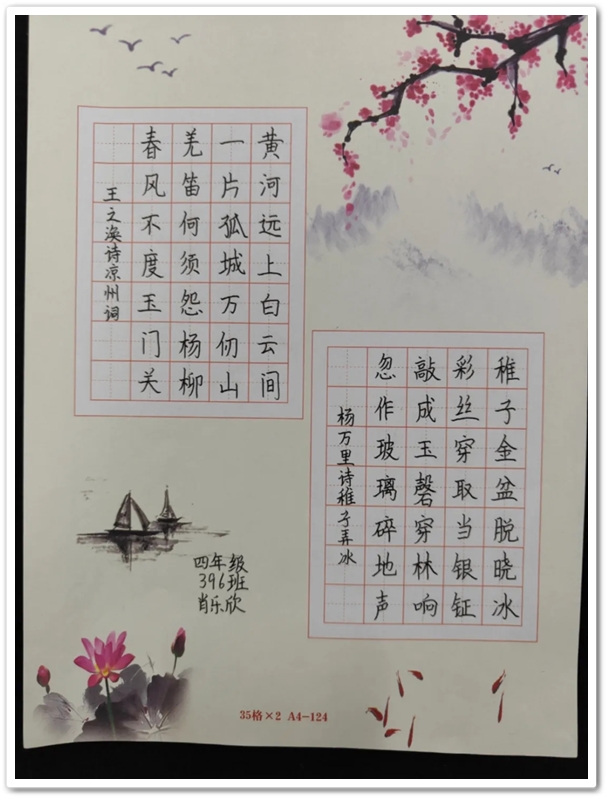 黄河远上白云间
一片孤城万仞山
羌笛何须怨杨柳
春风不度玉门关
王之涣诗凉州词
稚子金盆脱晓冰
彩丝穿取当银钲
敲成玉磬穿林响
忽作玻璃碎地声
杨万里诗稚子弄冰
四年级
396班
肖乐欣
35格×2 A4-124